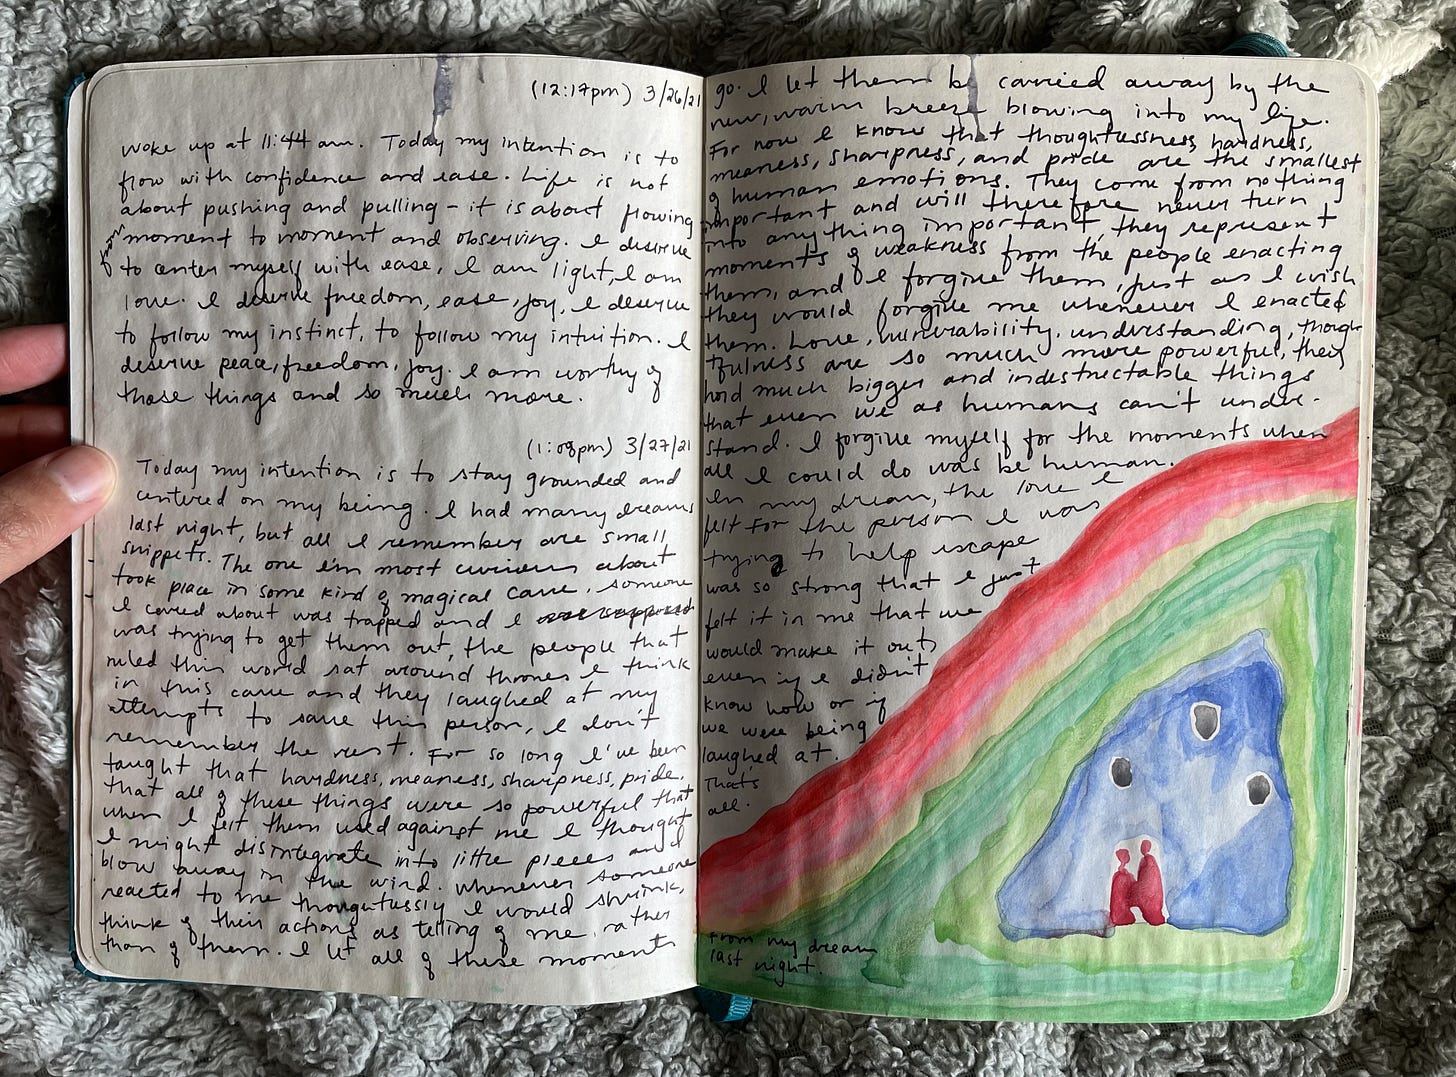 (12:17pm) 3/26/21
woke up at 11:44 am. Today my intention is to
flow with confidence and ease. Life is not
about pushing and pulling - it is about flowing
from moment to moment and observing. I deserve
to center myself with ease, I am light, I am
love. I deserve freedom, ease, joy, I deserve
to follow my instinct, to follow my intuition. I
deserve peace, freedom, joy. I am worthy of
those things and so much more.
(1:08pm) 3/27/21
Today my intention is to stay grounded and
centered on my being. I had many dreams
last night, but all I remember are small
snippets. The one I'm most curious about
took place in some kind of magical cave, someone
I cared about was trapped and I
was trying to get them out, the people that
ruled this world sat around thrones I think
in this cave and they laughed at my
attempts to save this person, I don't
remember the rest. For so long I've been
taught that hardness, meaness, sharpness, pride,
that all of these things were so powerful that
when I felt them used against me I thought
I might disintegrate into little pieces and
blow away in the wind. Whenever someone
reacted to me thoughtlessly I would shrink,
think of their actions as telling of me, rather
than of them. I let all of these moments
go. I let them be carried away by the
new, warm breeze blowing into my life.
For now I know that thoughtlessness, hardness,
meaness, sharpness, and pride are the smallest
of human emotions. They come from nothing
important and will therefore never turn
into anything important, they represent
moments of weakness from the people enacting
them, and I forgive them, just as I wish
they would forgive me whenever I enacted
them. Love, vulnerability, understanding, though
tfulness are so much more powerful, they
hold much bigger and indestructable things
that even we as humans can't under-
stand. I forgive myself for the moments when
all I could do was be human.
In my dream, the love I
felt for the person I was
trying to help escape
was so strong that I just
felt it in me that we
would make it out,
even if I didn't
know how or if
we were being
laughed at.
That's
all.
From my dream
last night.